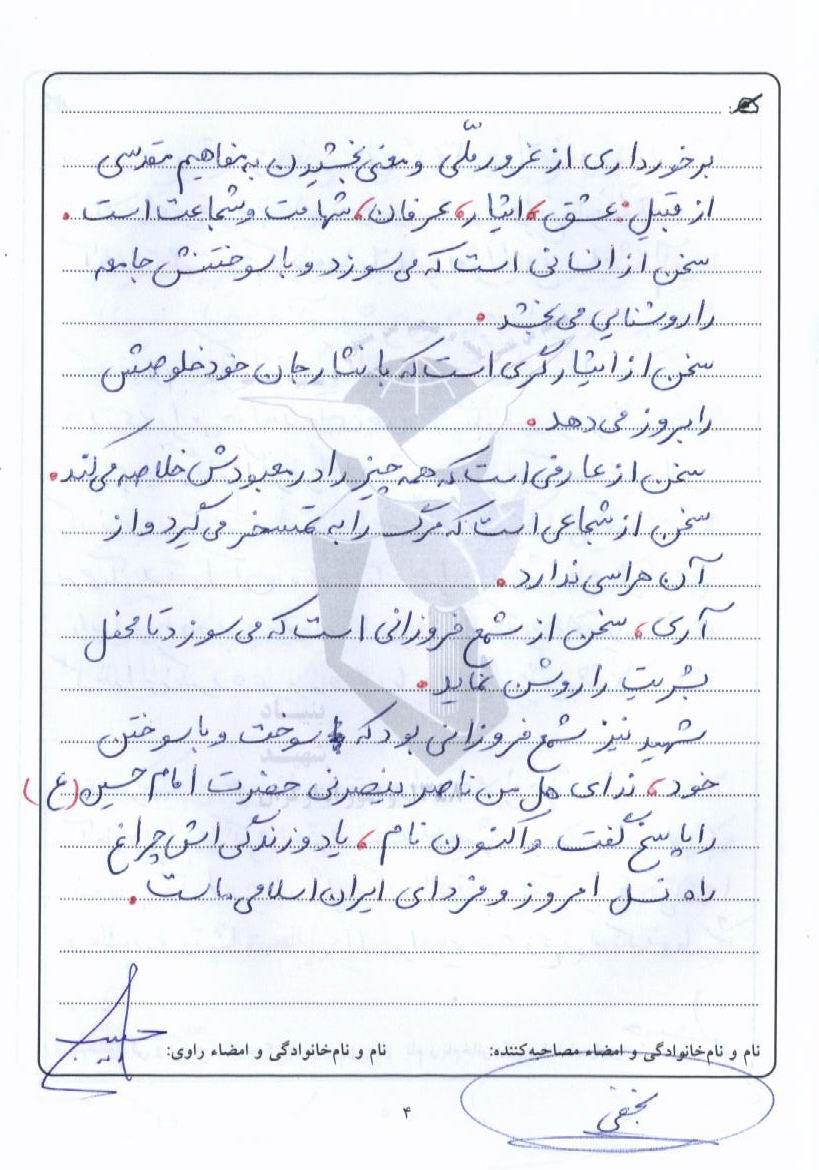 برخورداری از غرور ملّی و معنی بخشیدن به مفاهیم مقدسی
از قبیلِ: عشق، ایثار، عرفان، شهامت و شجاعت است.
سخن از انسانی است که می‌سوزد و با سوختنش جامعه
را روشنایی می‌بخشد.
سخن از ایثارگری است که با نثار جان خود خلوصش
را بروز می‌دهد.
سخن از عارفی است که همه چیز را در معبودش خلاصه می‌کند.
سخن از شجاعی است که مرگ را به تمسخر می‌گیرد و از
آن هراسی ندارد.
آری، سخن از شمع فروزانی است که می‌سوزد تا محفل
بشریت را روشن نماید.
شهید نیز شمع فروزانی بود که سوخت و با سوختن
خود، ندای هل من ناصر ینصرنی حضرت امام حسین (ع)
را پاسخ گفت و اکنون نام، یاد و زندگی اش چراغ
راه نسل امروز و فردای ایران اسلامی ماست.
بنیاد
شهید
نام و نام‌خانوادگی و امضاء مصاحبه‌کننده: نام و نام‌خانوادگی و امضاء راوی:
نجفی
۴